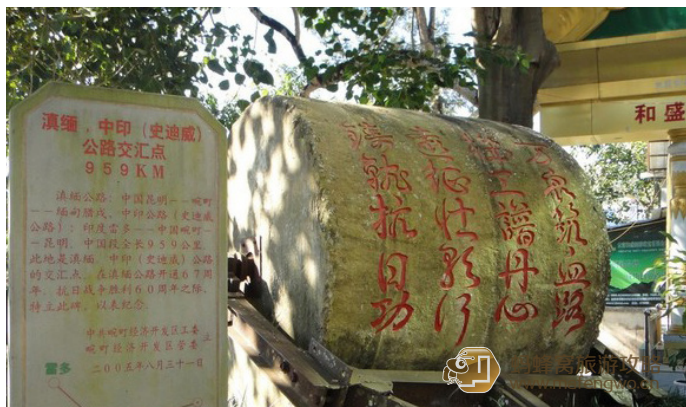 滇缅、中印（史迪威）
公路交汇点
959KM
滇缅公路：中国昆明——畹町
——缅甸腊戌，中印公路（史迪威
公路）：印度雷多——中国畹町—
—昆明。中国段全长959公里。
此地是滇缅、中印（史迪威）公路
的交汇点，在滇缅公路开通67周
年，抗日战争胜利60周年之际，
特立此碑，以表纪念。
中共畹町经济开发区工委
畹町经济开发区管委 立
二00五年八月三十一日
雷多
万众筑血路
施工谱丹心
远征壮歌行
镇魂抗日功
和盛